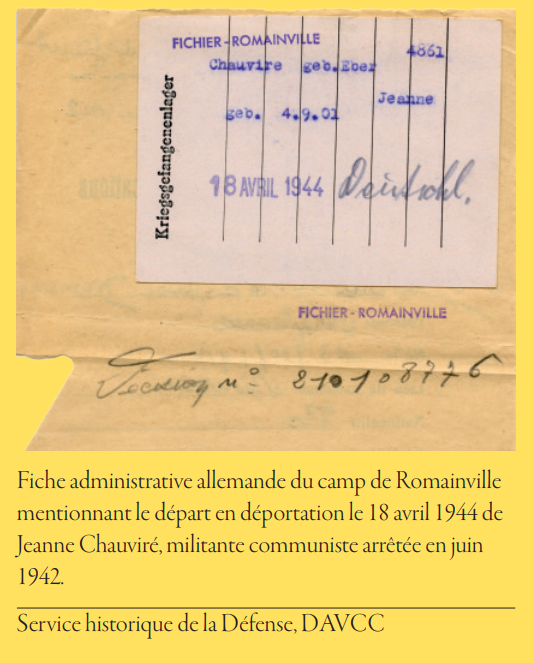 FICHIER-ROMAINVILLE
4861
Chauvire geb.Eber
Jeanne
geb. 4.9.01
Kriegsgefangenenlager
18 AVRIL 1944 Deutschl.
FICHIER-ROMAINVILLE
Décision n° 210108776
Fiche administrative allemande du camp de Romainville
mentionnant le départ en déportation le 18 avril 1944 de
Jeanne Chauviré, militante communiste arrêtée en juin
1942.
Service historique de la Défense, DAVCC